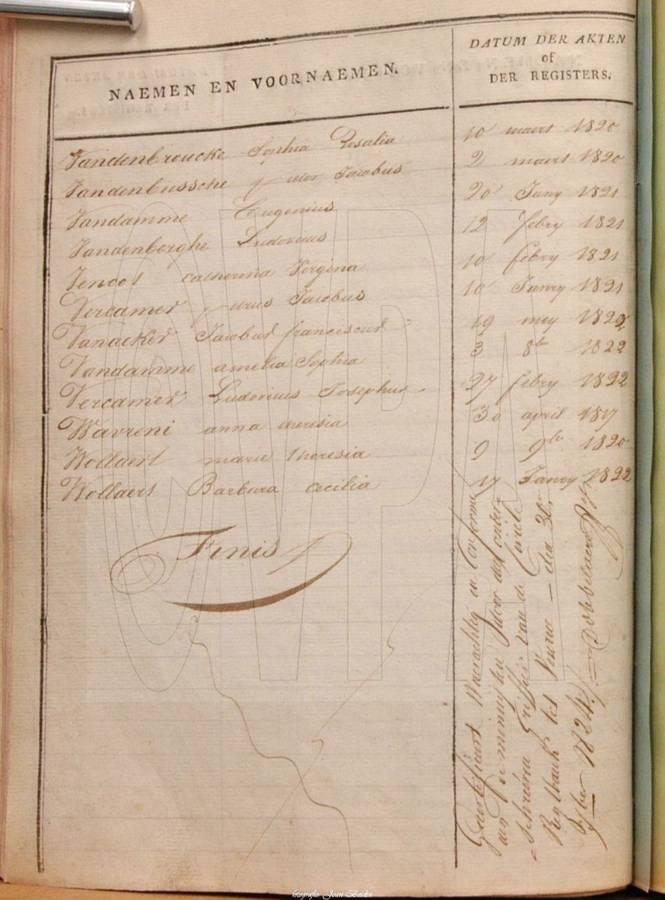 NAEMEN EN VOORNAEMEN.
DATUM DER AKTEN
of
DER REGISTERS.
Vandenbroucke Sophia Rosalia 10 maert 1820
Vandenbussche Jacobus 2 maert 1820
Vandamme Eugenius 20 Juny 1821
Vandenberghe Ludovicus 12 febry 1821
catherina Virgina 10 febry 1821
Vercamer Jacobus 10 Janry 1821
Vanacker Jacobus franciscus 19 mey 1822
Vandamme amelia Sophia 3 8br 1822
Vercamer Ludovicus Josephus 27 febry 1822
Wavreni anna theresia 30 april 1817
Wollaert marie theresia 9 9br 1820
Wollaert Barbara cecilia 17 Janry 1822
Finis
Gecertifieert Waerachtig en Conforme
aen de minuten door den onder
Schreven Greffier van de Civile
Regtbank tot Veurne den 31
Xber 1824